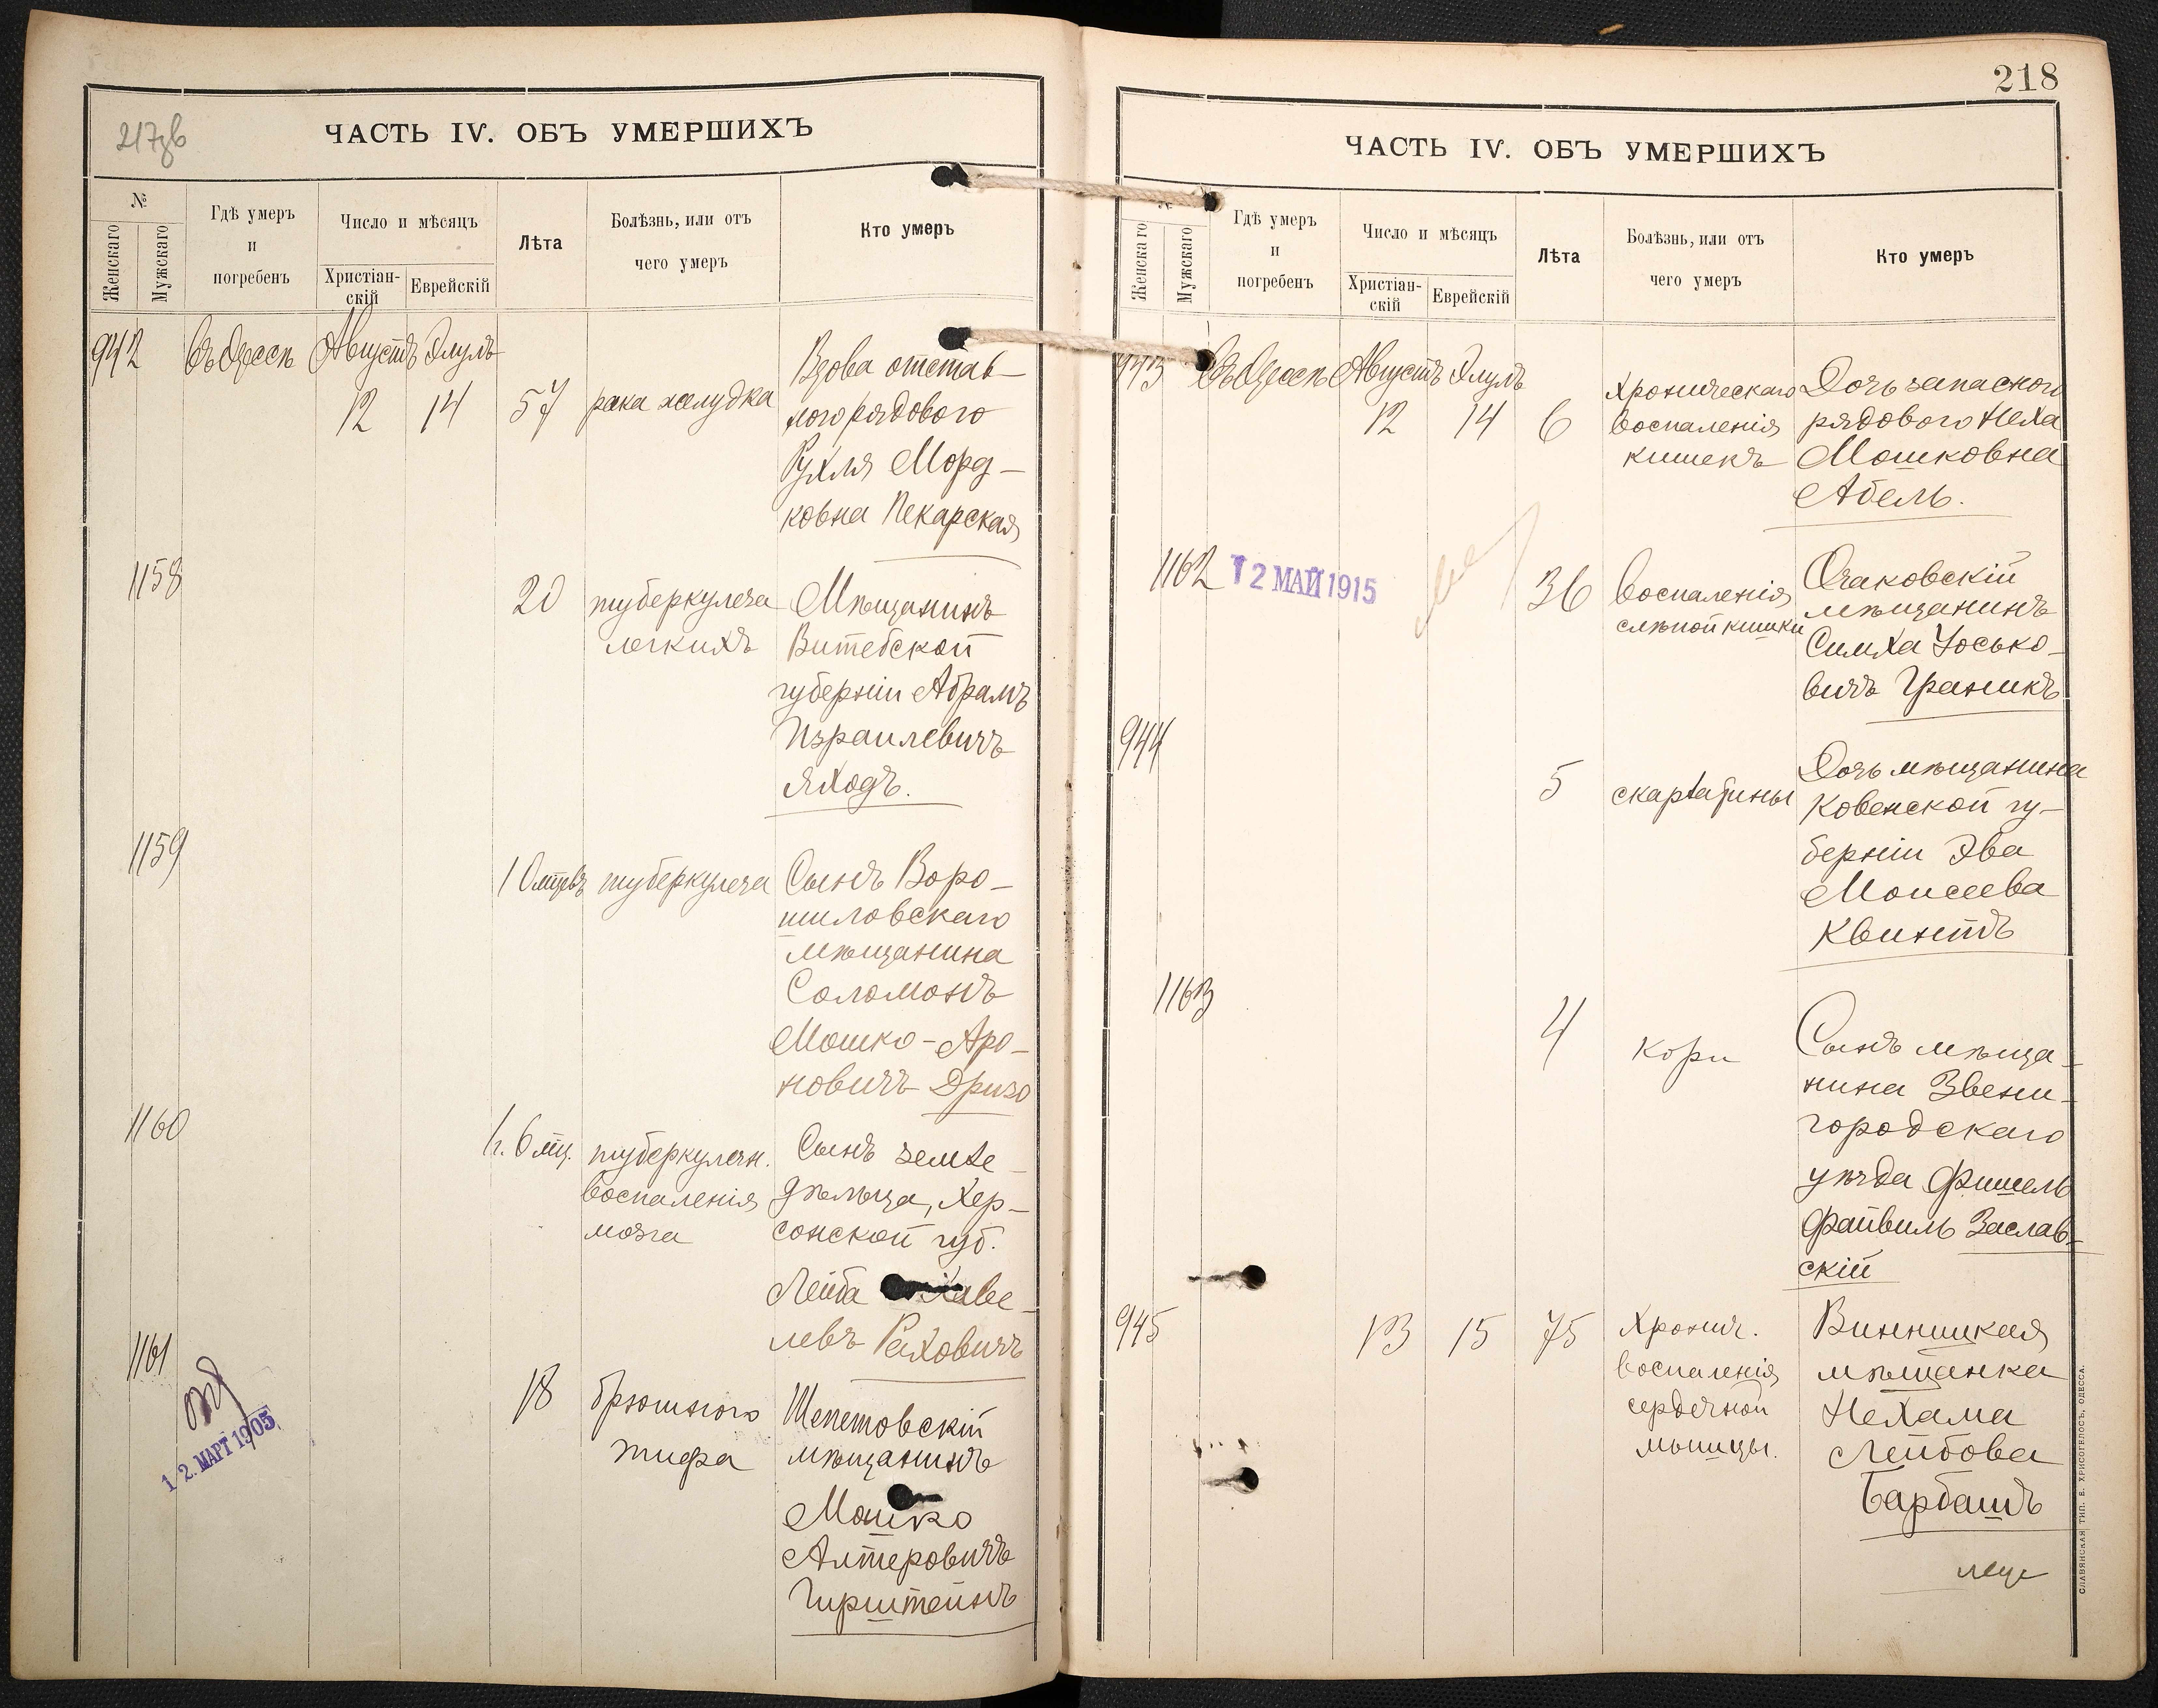 217зв
ЧАСТЬ IV. ОБЪ УМЕРШИХЪ
№
Женскаго
Мужскаго
Гдѣ умеръ
и
погребенъ
Число и мѣсяцъ
Христіан-
скій
Еврейскій
Лѣта
Болѣзнь, или отъ
чего умеръ
Кто умеръ
942 Въ Одессѣ Августъ Элулъ
12 14 57 рака желудка
Вдова отстав-
ного рядового
Рухля Морд-
ковна Пекарская
1158
20 туберкулеза
легкихъ
Мѣщанинъ
Витебской
губерніи Абрамъ
Израилевичъ
Яходъ.
1159
10 мцевъ туберкулеза
Сынъ Воро-
шиловскаго
мѣщанина
Соломонъ
Мошко-Аро-
новичъ Дризо
1160
1 г. 6 мц. туберкулезн.
воспаленія
мозга
Сынъ земле-
дѣльца, Хер-
сонской губ.
Лейба
левъ Раховичъ
1161
18 брюшного
тифа
Шепетовскій
мѣщанинъ
Мошко
Алтеровичъ
Гирштейнъ
12. МАРТ 1905
218
ЧАСТЬ IV. ОБЪ УМЕРШИХЪ
Женскаго
Мужскаго
Гдѣ умеръ
и
погребенъ
Число и мѣсяцъ
Христіан-
скій
Еврейскій
Лѣта
Болѣзнь, или отъ
чего умеръ
Кто умеръ
943 Въ Одессѣ Августъ Элулъ
12 14 6
Хроническаго
воспаленія
кишекъ
Дочь запасного
рядового Неха
Мошковна
Абель.
1162
12 МАЙ 1915
36 воспаленія
слѣпой кишки
Очаковскій
мѣщанинъ
Симха Іосько-
вичъ Граникъ
944
5 скарлатины
Дочь мѣщанина
Ковенской гу-
берніи Эва
Моисеева
Квинтъ
1163
4 кори
Сынъ мѣща-
нина Звени-
городскаго
уѣзда Фишель
Файвиль Заслав-
скій
945
13 15 75 Хронич.
воспаленія
сердечной
мышцы.
Винницкая
мѣщанка
Нехама
Лейбова
Барбашъ
СЛАВЯНСКАЯ ТИП. Е. ХРИСОГЕЛОСЪ, ОДЕССА.